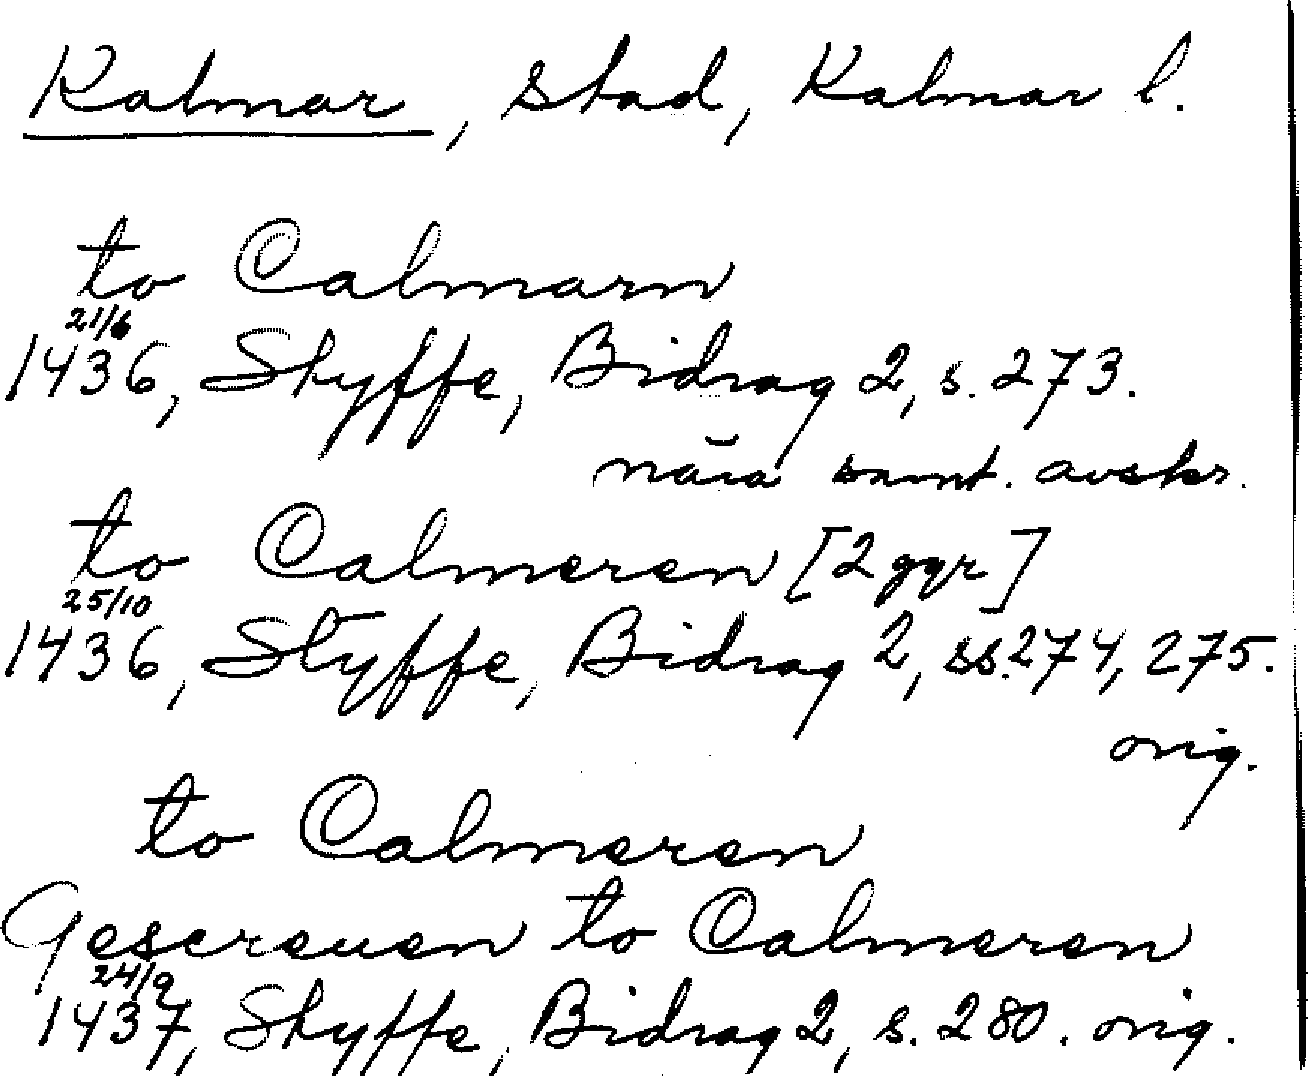 Kalmar, stad, Kalmar l.
to Calmarn
21/6
1436, Styffe, Bidrag 2, s. 273.
nära samt. avskr.
to Calmeren [2 ggr]
25/10
1436, Styffe, Bidrag 2, ss. 274, 275.
orig.
to Calmeren
Gescreuen to Calmeren
24/9
1437, Styffe, Bidrag 2, s. 280. orig.